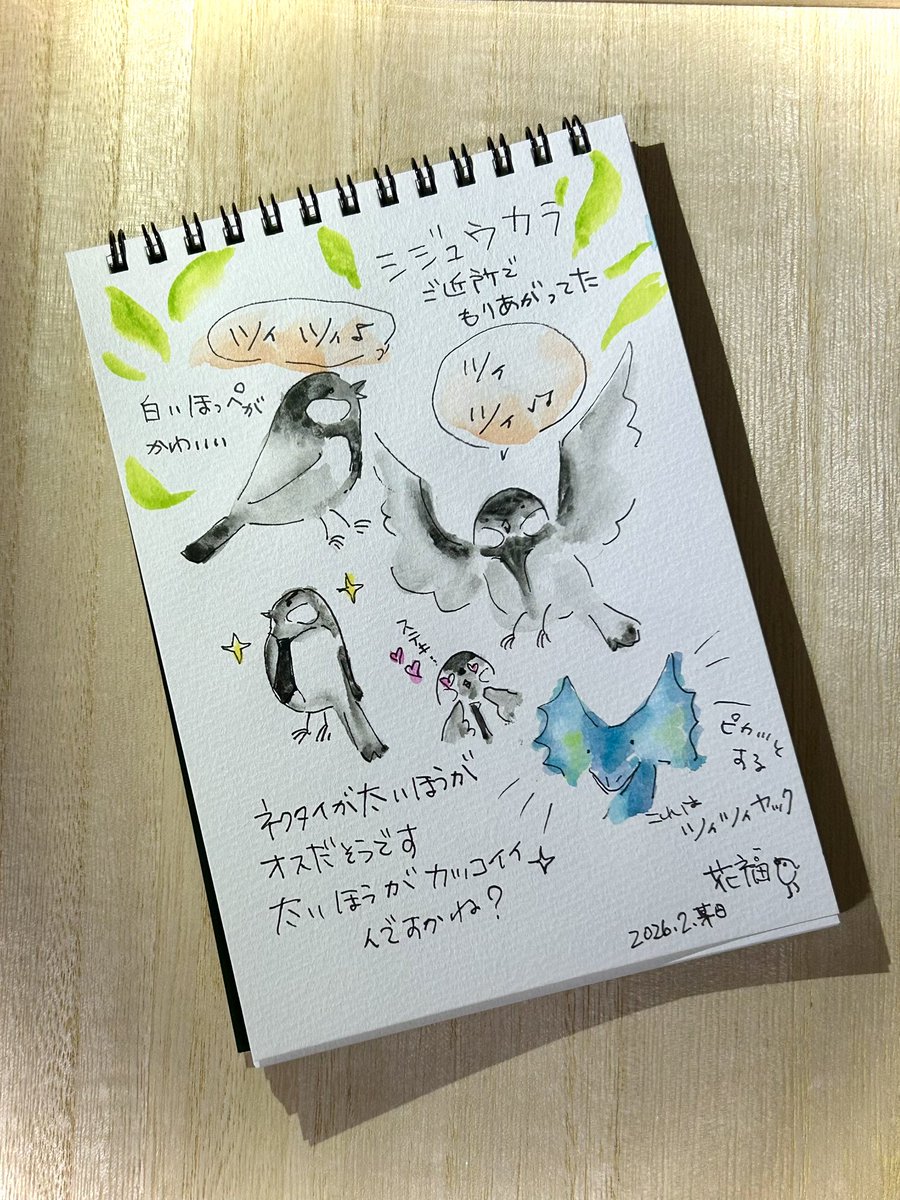 シジュウカラ
ご近所で
もりあがってた
ツィ ツィ♪
ツィ
ツィ♪♪
白いほっぺが
かわいい
ステキ…
ピカッと
する
これは
ツィツィヤック
ネクタイが太いほうが
オスだそうです
太いほうがカッコイイ
んですかね?
花福
2026.2.某日